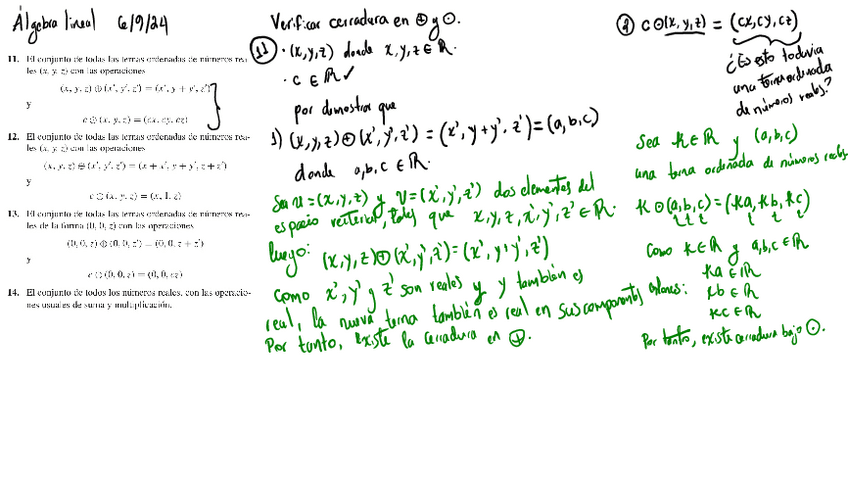 Álgebra lineal 6/9/24
11. El conjunto de todas las ternas ordenadas de números rea-
les (x, y, z) con las operaciones
(x, y, z) ⊕ (x', y', z') = (x', y + y', z')
y
c ⊙ (x, y, z) = (cx, cy, cz)
12. El conjunto de todas las ternas ordenadas de números rea-
les (x, y, z) con las operaciones
(x, y, z) ⊕ (x', y', z') = (x + x', y + y', z + z')
y
c ⊙ (x, y, z) = (x, 1, z)
13. El conjunto de todas las ternas ordenadas de números rea-
les de la forma (0, 0, z) con las operaciones
(0, 0, z) ⊕ (0, 0, z') = (0, 0, z + z')
y
c ⊙ (0, 0, z) = (0, 0, cz)
14. El conjunto de todos los números reales, con las operacio-
nes usuales de suma y multiplicación.
Verificar cerradura en ⊕ y ⊙.
11 · (x,y,z) donde x,y,z ∈ ℝ.
· c ∈ ℝ ✓
por demostrar que
1) (x,y,z) ⊕ (x',y',z') = (x', y+y', z') = (a,b,c)
donde a,b,c ∈ ℝ.
Sea u=(x,y,z) y v=(x',y',z') dos elementos del
espacio vectorial, tales que x,y,z,x',y',z' ∈ ℝ.
luego: (x,y,z)⊕(x',y',z')=(x', y+y', z')
como x', y' y z' son reales y y también es
real, la nueva terna también es real en sus componentes,
Por tanto, existe la cerradura en ⊕.
2 c⊙(x,y,z) = (cx,cy,cz)
¿Es esto todavía
una terna ordenada
de números reales?
Sea k∈ℝ y (a,b,c)
una terna ordenada de números reales
k⊙(a,b,c)=(ka,kb,kc)
Como k∈ℝ y a,b,c∈ℝ
entonces: ka ∈ ℝ
kb ∈ ℝ
kc ∈ ℝ
Por tanto, existe cerradura bajo ⊙.